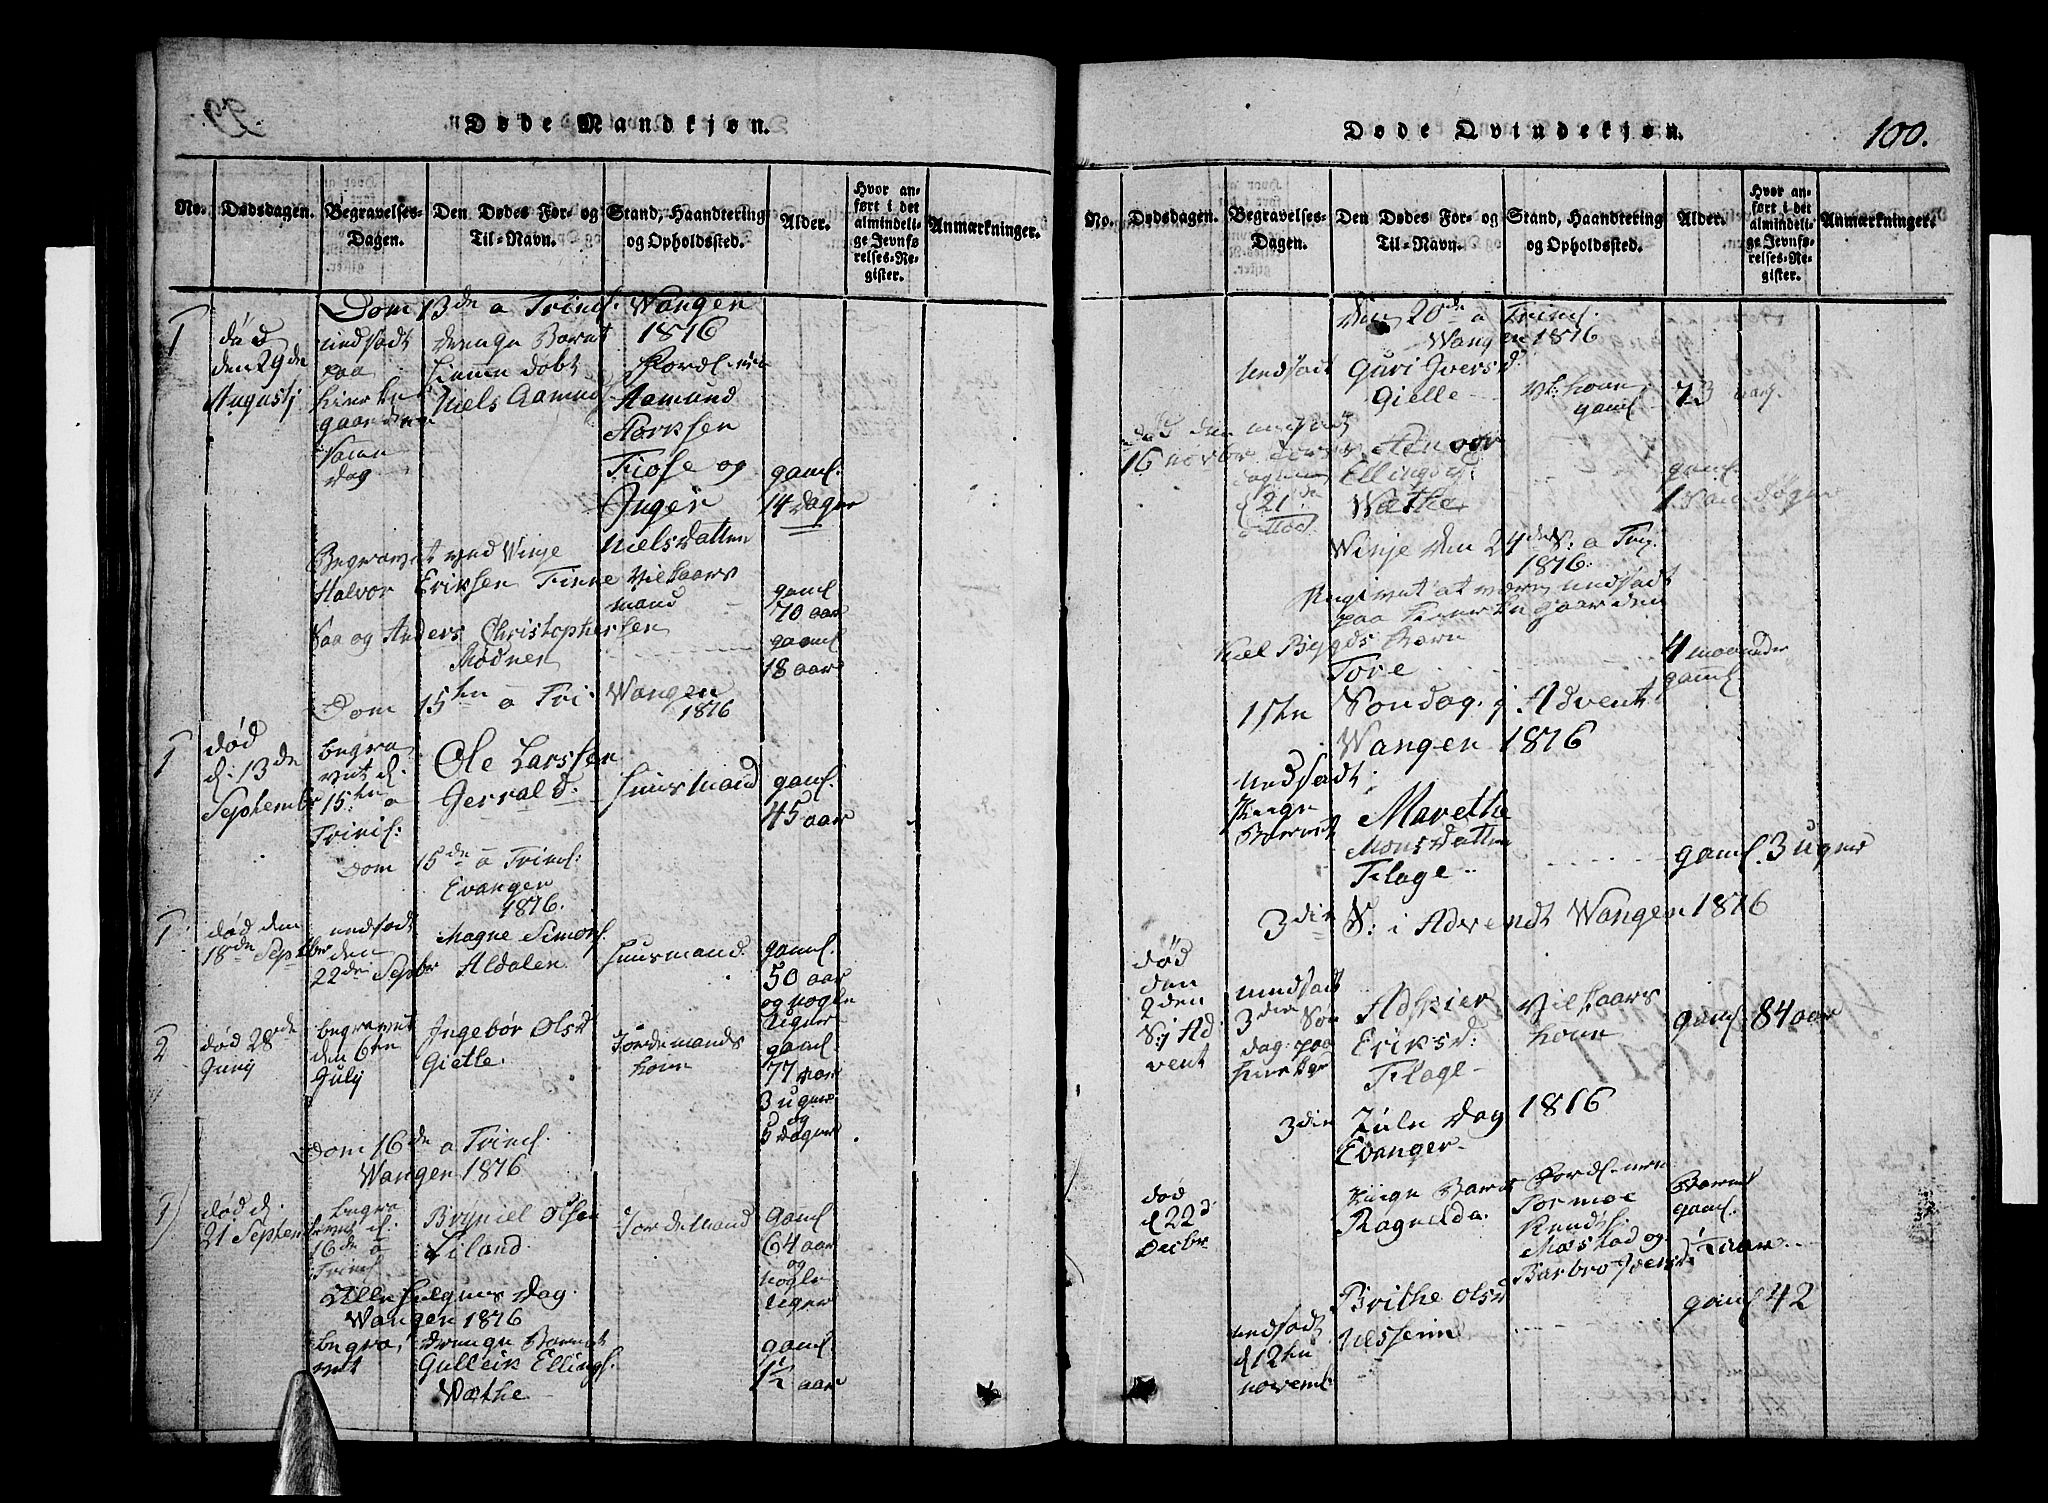 99.
Døde Mandkjøn.
No.
Dødsdagen.
Begravelses-
Dagen.
Den Dødes For- og
Til-Navn.
Stand, Haandtering
og Opholdssted.
Alder.
Hvor an-
ført i det
almindeli-
ge Jevnfø-
relses-Re-
gister.
Anmærkninger.
Dom 13de a Trinit. Wangen
1816
1
død
den 29de
Augustj
nedsadt
paa
gaarden
dag
drenge Barnet
hieme døbt
Niels Aamund
Aamund
Fiose og
Inger
Nielsdatter
gaml.
14 dager
Begravet ved Winje
Halvor Eriksen Finne Vilkaars
mand
gaml
70 aar
Saa og Anders Christophersen
Mødner
gaml
18 aar
Dom 15ten a Tri: Wangen
1816
1
død
d. 13de
Septembr
begra
vet d.
15ten a
Trinit:
Ole Larssen
Gerrald.
Huusmand
gaml.
45 aar
Dom 15de a Trinit.
Evanger
1816.
1
død den
18de Septbr
nedsadt
den
22de Sepbr
Magne Simons.
Aldalen.
Huusmand.
gaml.
50 aar
og nogle
Uger
2
død 28de
Junij
begravet
den 6ten
July
Ingebor Olsd
Gielle.
Jordemands
kone
gaml.
77 aar
3 uger
og
5 dager
Dom 16de a Trinit.
Wangen 1816
1)
død d.
21 Septem
begra
vet d.
16de a
Trinit
Bryniel Olsen
Liland.
Jordemand
gaml
64 aar
og
nogle
Uger
Alle helgens Dag.
Wangen 1816
begra
vet
drenge Barnet
Gulleik Ellings.
Wæthe
gaml.
1½ aar
100.
Døde Qvindekjøn.
No.
Dødsdagen.
Begravelses-
Dagen.
Den Dødes For- og
Til-Navn.
Stand, Haandtering
og Opholdssted.
Alder.
Hvor an-
ført i det
almindeli-
ge Jevnfø-
relses-Re-
gister.
Anmærkninger.
Den 20de a Trinit.
Wangen 1816
nedsadt
Guri Iversd.
Gielle
gaml
73 aar
død den
16 novbr
nedsadt
21de
Ellingsd:
Wæthe
gaml
1
Winje den 24de S: a Tri.
1816.
Angivet at være nedsadt
paa Kierke gaarden
Kiel Bygds Barn
Tore
4 maaneder
gaml
1ste Søndag j Advent
Wangen 1816
nedsadt
Pige
Barnet
Marethe
Monsdatter
Flage
gaml. 3 uger
3die S: i Advendt Wangen 1816
død
den
2den
S: j Ad
vent
nedsadt
3die Søn
dag paa
Eriksd:
Flage
Vilkaars
kone
gaml 84 aar
3die Jule Dag 1816
Evanger
død
d 22d
Decbr
Pige Barn
Ragnilda.
Tormoe
Knuds.
Møstad og
Barbro
Barnet
gaml.
nedsadt
d 12te
novemb
Brithe Olsd
gaml 42